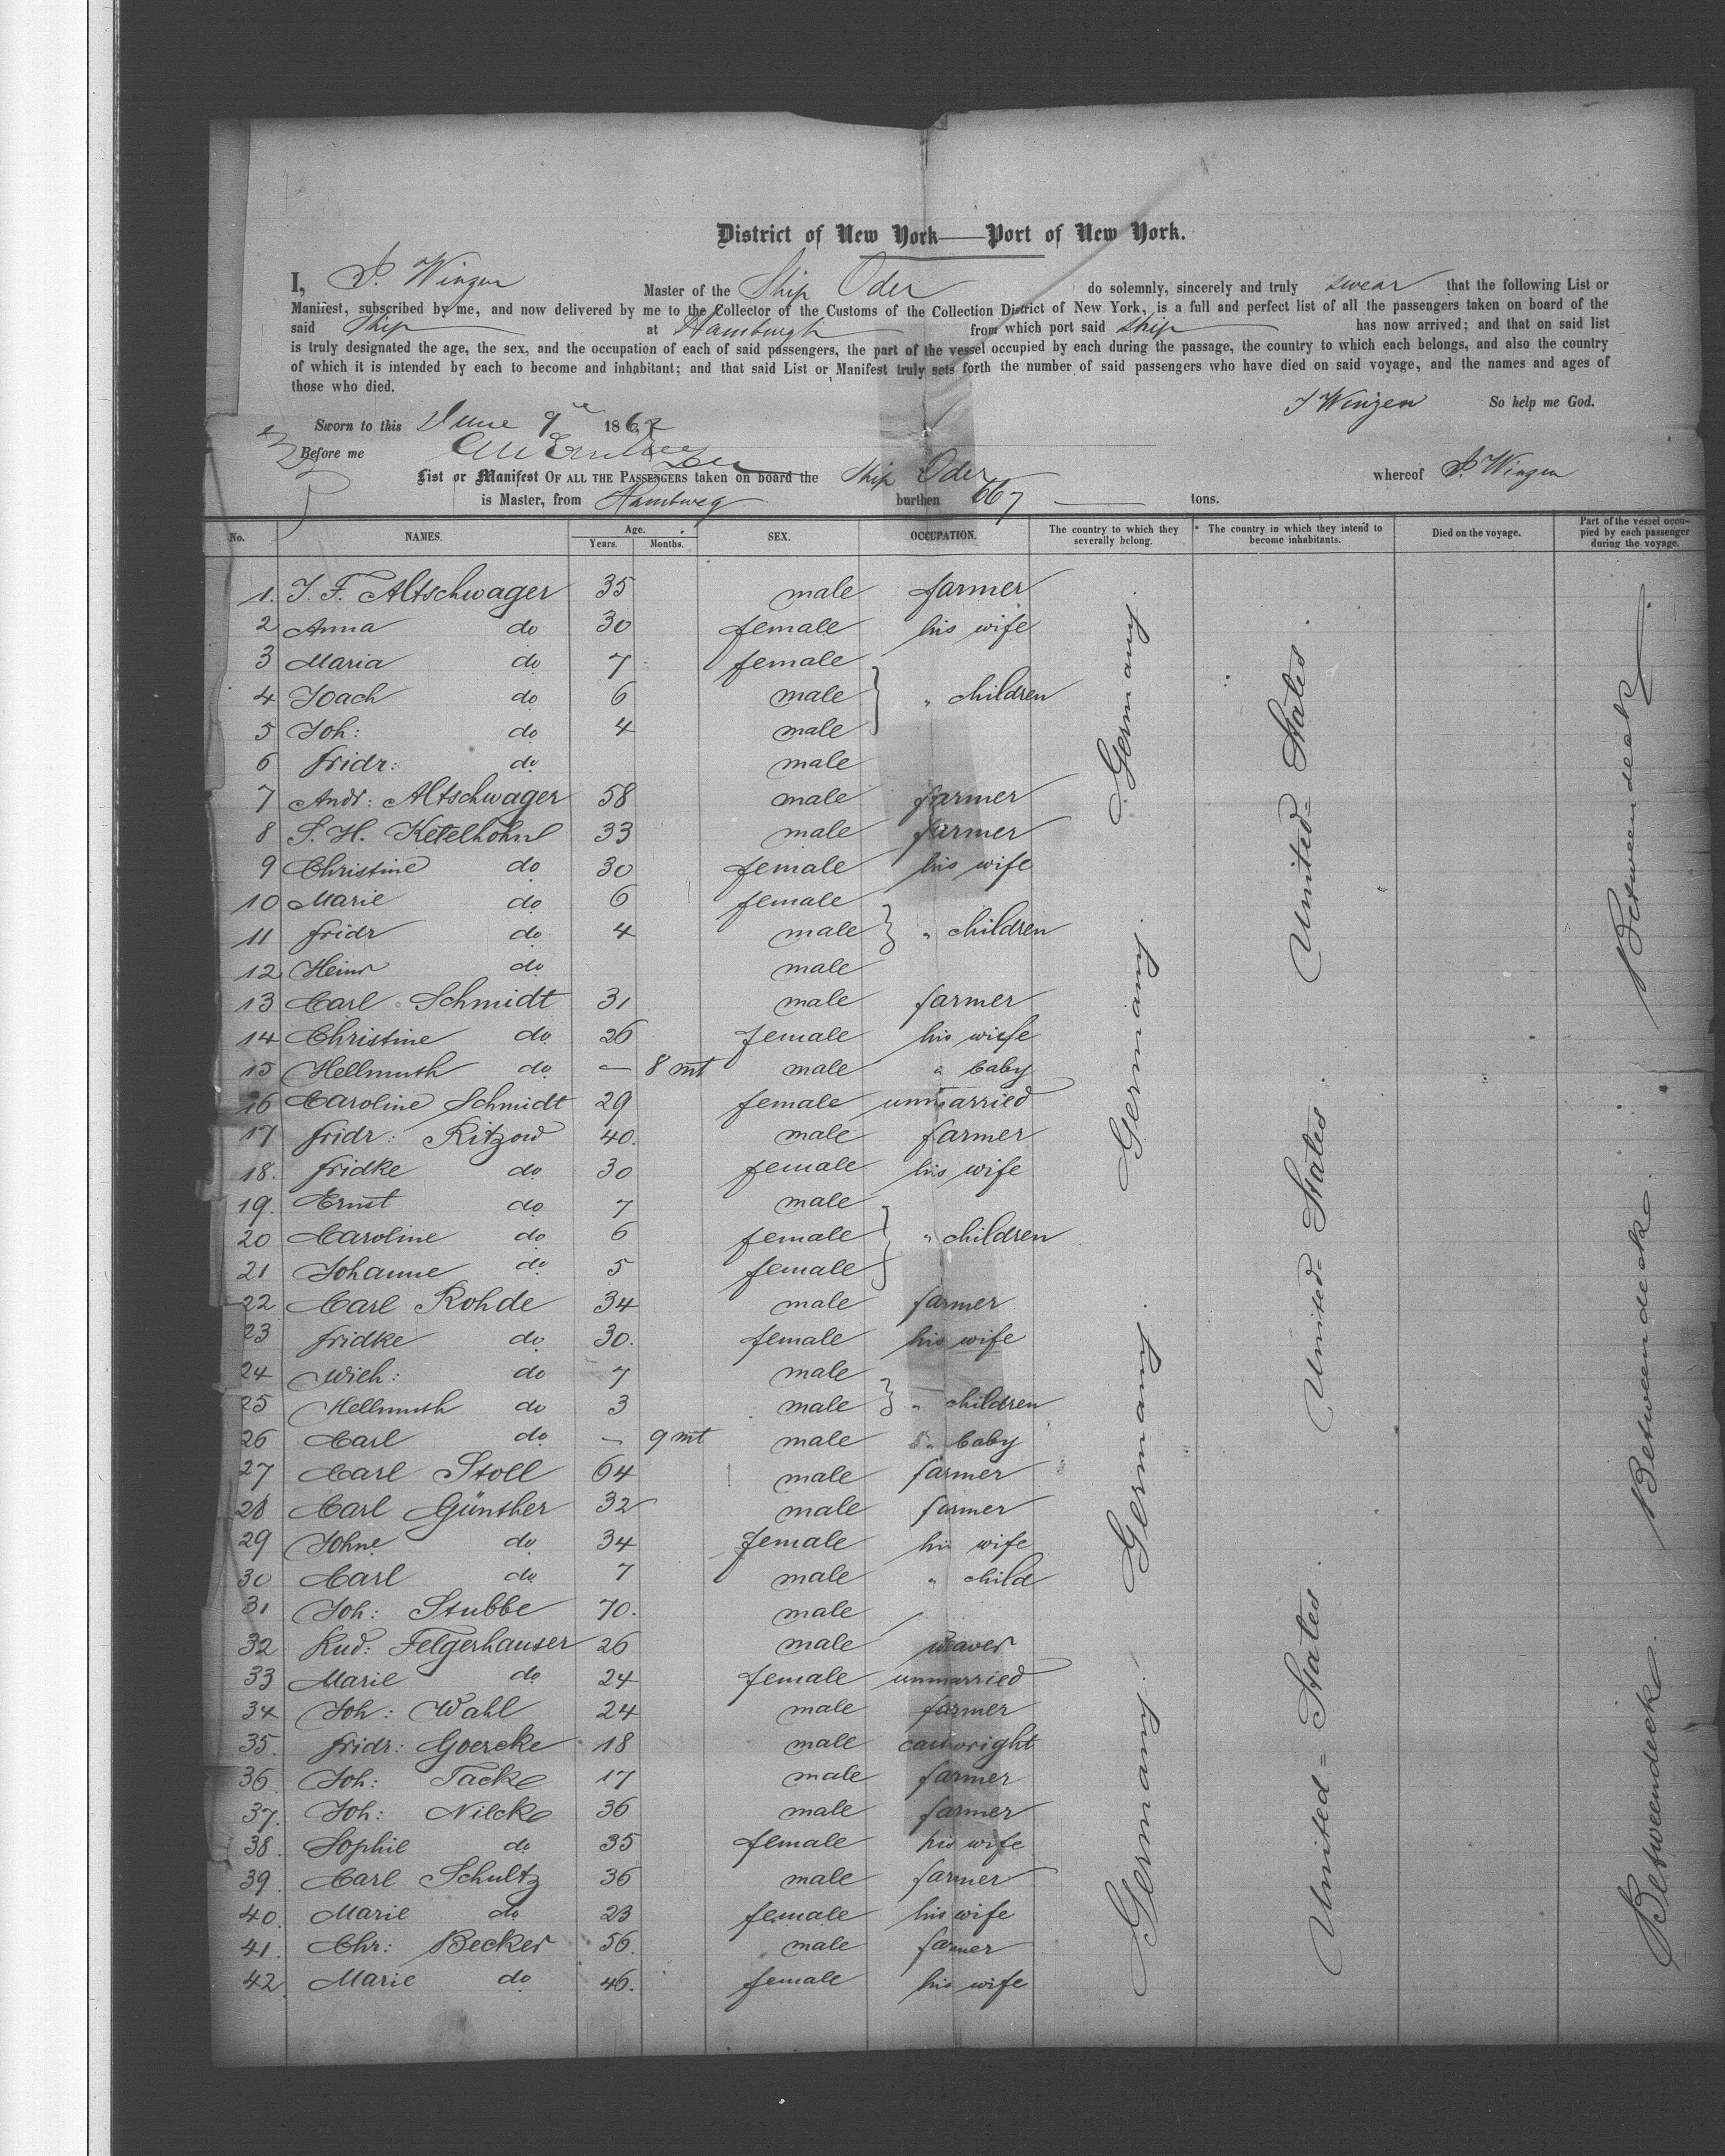 District of New York — Port of New York.
I, P. Winzen Master of the Ship Oder do solemnly, sincerely and truly swear that the following List or
Manifest, subscribed by me, and now delivered by me to the Collector of the Customs of the Collection District of New York, is a full and perfect list of all the passengers taken on board of the
said Ship at Hamburgh from which port said ship has now arrived; and that on said list
is truly designated the age, the sex, and the occupation of each of said passengers, the part of the vessel occupied by each during the passage, the country to which each belongs, and also the country
of which it is intended by each to become and inhabitant; and that said List or Manifest truly sets forth the number of said passengers who have died on said voyage, and the names and ages of
those who died.
Winzen So help me God.
Sworn to this June 9 1862
Before me
List or Manifest OF ALL THE PASSENGERS taken on board the Ship Oder whereof P. Winzen
is Master, from Hamburg burthen 667 tons.
No. NAMES. Age. Years. Months. SEX. OCCUPATION. The country to which they severally belong. The country in which they intend to become inhabitants. Died on the voyage. Part of the vessel occupied by each passenger during the voyage.
1. J. F. Altschwager 35 male farmer
2 Anna do 30 female his wife
3 Maria do 7 female
4 Joach do 6 male " children
5 Joh: do 4 male
6 Fridr: do male
7 Andr: Altschwager 58 male farmer
8 S. H. Ketelhohn 33 male farmer
9 Christine do 30 female his wife
10 Marie do 6 female
11 Fridr do 4 male " children
12 Heinr do male
13 Carl Schmidt 31 male farmer
14 Christine do 26 female his wife
15 Hellmuth do — 8 mt male " baby
16 Caroline Schmidt 29 female unmarried
17 Fridr: Ritzow 40. male farmer
18. Fridke do 30 female his wife
19. Ernst do 7 male
20 Caroline do 6 female " children
21 Johanne do 5 female
22 Carl Rohde 34 male farmer
23 Fridke do 30. female his wife
24 Wilh: do 7 male
25 Hellmuth do 3 male " children
26 Carl do — 9 mt male " baby
27 Carl Stoll 64 male farmer
28 Carl Günther 32 male farmer
29 Johne do 34 female his wife
30 Carl do 7 male " child
31 Joh: Stubbe 70. male
32 Rud: Felgerhauser 26 male weaver
33 Marie do 24 female unmarried
34 Joh: Wahl 24 male farmer
35. Fridr: Goercke 18 male cartwright
36 Joh: Tacke 17 male farmer
37. Joh: Nilcke 36 male farmer
38. Sophie do 35 female his wife
39. Carl Schultz 36 male farmer
40. Marie do 23 female his wife
41. Chr: Becker 56. male farmer
42. Marie do 46. female his wife
Germany.
Germany.
Germany.
Germany.
United States.
United States.
United States.
Betweendeck.
Betweendeck.
Betweendeck.